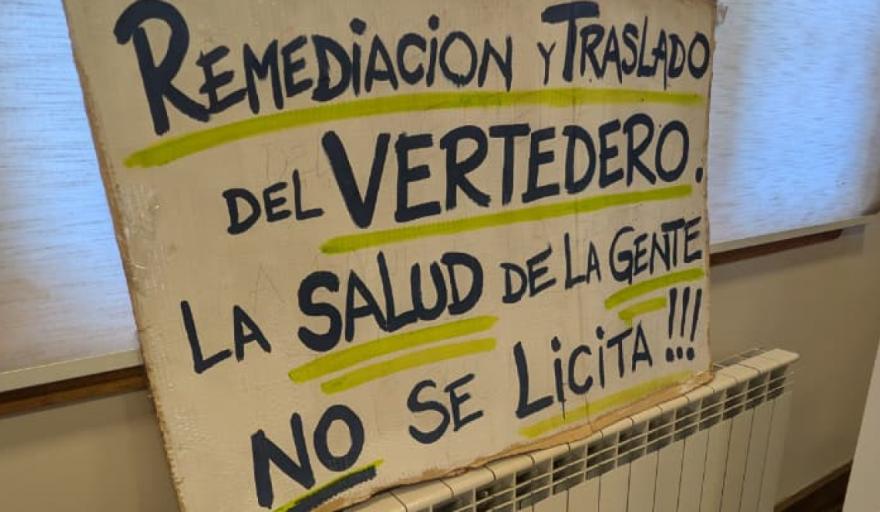 REMEDiACiON Y TRASLADO
DEL VERTEDERO.
LA SALUD DE LA GENTE
NO SE LiCiTA!!!